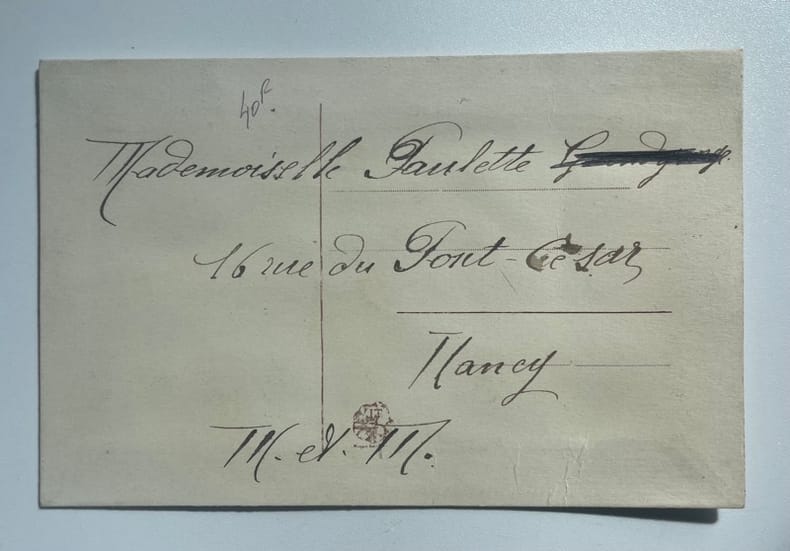 40F.
Mademoiselle Paulette
16 rue du Pont-Césár
Nancy
M. et. M.